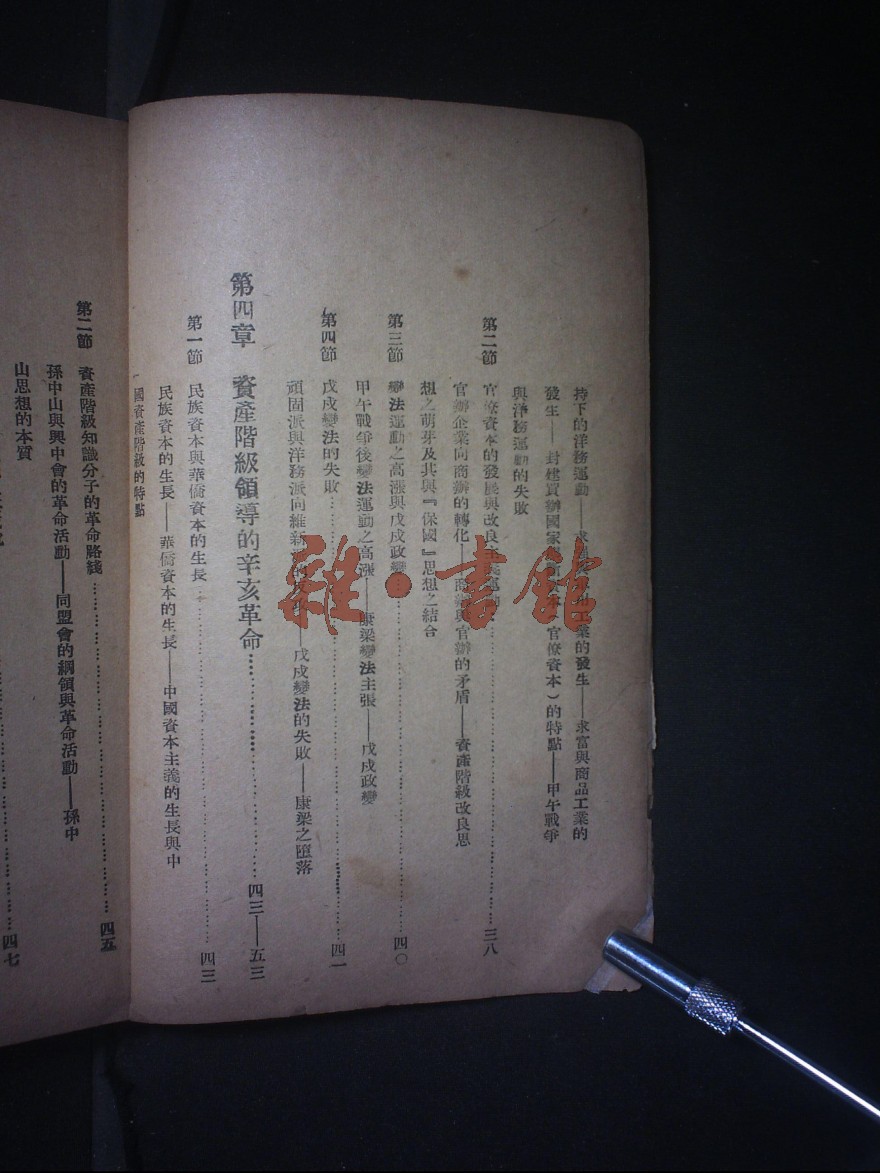 持下的洋務運動——求強與軍用工業的發生——求富與商品工業的
發生——封建買辦國家 資本（官僚資本）的特點——甲午戰爭
與洋務運動的失敗
第二節 官僚資本的發展與改良主義運動……三八
官辦企業向商辦的轉化——商辦與官辦的矛盾——資產階級改良思
想之萌芽及其與『保國』思想之結合
第三節 變法運動之高漲與戊戌政變……四〇
甲午戰爭後變法運動之高漲——康梁變法主張——戊戌政變
第四節 戊戌變法的失敗……四一
頑固派與洋務派向維新 的反攻——戊戌變法的失敗——康梁之墮落
第四章 資產階級領導的辛亥革命……四三——五三
第一節 民族資本與華僑資本的生長……四三
民族資本的生長——華僑資本的生長——中國資本主義的生長與中
國資產階級的特點
第二節 資產階級知識分子的革命路綫……四五
孫中山與興中會的革命活動——同盟會的綱領與革命活動——孫中
山思想的本質
四七
雜·書館